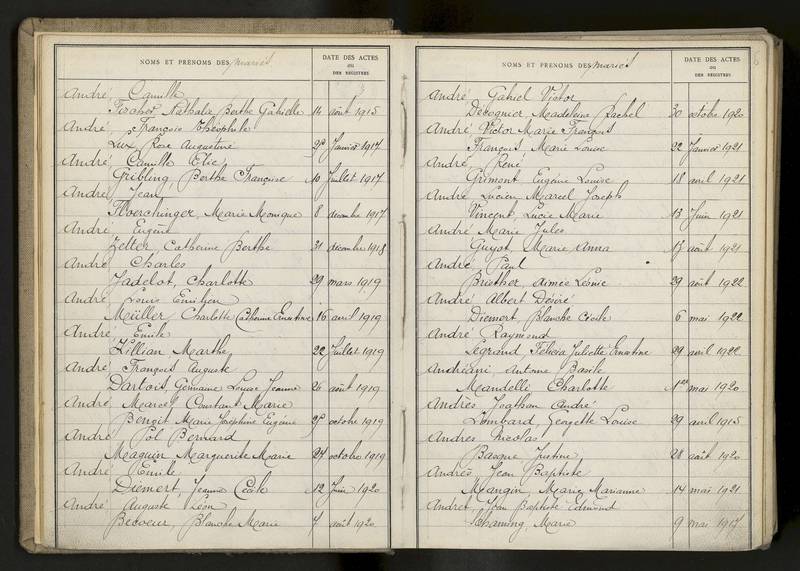 NOMS ET PRENOMS DES mariés
DATE DES ACTES
OU
DES REGISTRES
André, Camille
Fischer Nathalie Berthe Gabrielle 14 août 1915
André, François Théophile
Lux Rose Augustine Janvier 1917
André, Camille Elie
Griebling, Berthe Françoise 10 Juillet 1917
André Jean
Floerchinger, Marie Monique 8 décembre 1917
André Eugène
Zetter, Catherine Berthe 31 décembre 1918
André Charles
Jadelot, Charlotte 29 mars 1919
André Louis Emilien
Müller, Charlotte Catherine Ernestine 16 avril 1919
André, Emile
Killian Marthe 22 Juillet 1919
André François Auguste
Dartois, Germaine Louise Jeanne 26 août 1919
André Marcel Constant Marie
Benoit Marie Joséphine Eugénie octobre 1919
André Pol Bernard
Maquin Marguerite Marie octobre 1919
André Emile
Diemert, Jeanne Cécile 12 Juin 1920
André Auguste Léon
Becoeur, Blanche Marie 7 août 1920
NOMS ET PRENOMS DES mariés
DATE DES ACTES
OU
DES REGISTRES
André Gabriel Victor
Madeleine Rachel 30 octobre 1920
André Victor Marie François
François, Marie Louise 22 Janvier 1921
André, René
Grimont Eugénie Louise 18 avril 1921
André Lucien Marcel Joseph
Vincent, Lucie Marie 13 Juin 1921
André Marie Jules
Guyot, Marie Anna 17 août 1921
André Paul
Aimée Léonie 29 août 1922
André Albert Désiré
Diemert, Blanche Cécile 6 mai 1922
André Raymond
Legrand, Félicia Juliette Ernestine 29 avril 1922
Andréani Antoine Basile
Mandelli Charlotte 1er mai 1920
Andrès Joathan André
Lombard, Georgette Louise 29 avril 1915
Andres Nicolas
Basque Justine 28 août 1920
Andrès Jean Baptiste
Mangin, Marie Marianne 14 mai 1921
Andret, Jean Baptiste Edmond
Chaming, Marie 9 mai 1917